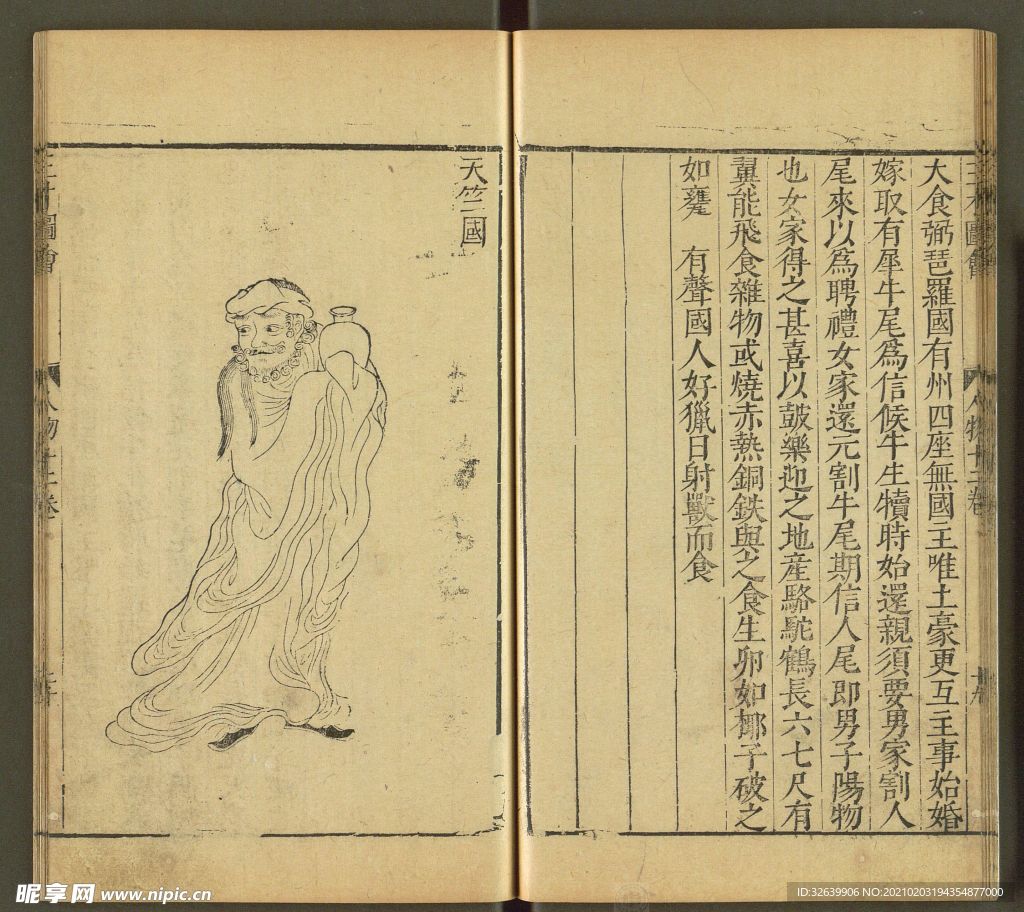 三才圖會
人物十二卷
十九
大食弼琶羅國有州四座無國主唯土豪更互主事始婚
嫁取有犀牛尾爲信候牛生犢時始還親須要男家割人
尾來以爲聘禮女家還元割牛尾期信人尾即男子陽物
也女家得之甚喜以鼓樂迎之地産駱駝鶴長六七尺有
翼能飛食雜物或燒赤熱銅鉄與之食生卵如椰子破之
如甕 有聲國人好獵日射獸而食
天竺國
三才圖會
人物十二卷
二十
昵享网 www.nipic.cn
ID:32639906 NO:20210203194354877000